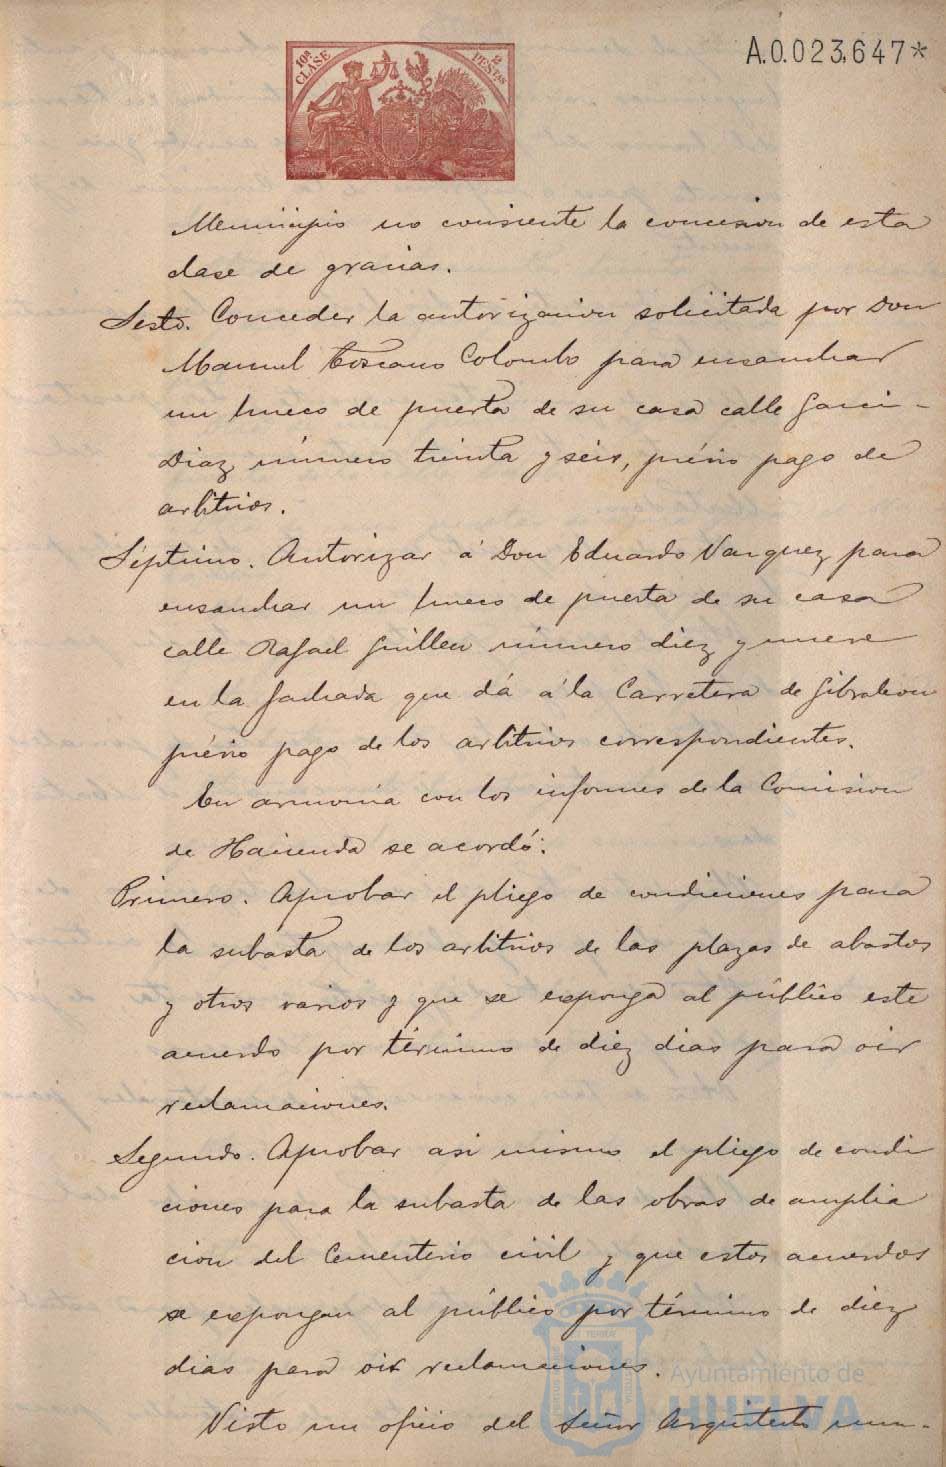 10ª CLASE
2 PESETAS
A.0.023,647*
Municipio no consiente la concesion de esta
clase de gracias.
Sesto. Conceder la autorizacion solicitada por Don
Manuel Toscano Colombo para ensanchar
un hueco de puerta de su casa calle Garci-
Diaz número treinta y seis, prévio pago de
arbitrios.
Séptimo. Autorizar á Don Eduardo Vazquez para
ensanchar un hueco de puerta de su casa
calle Rafael Guillen número diez y nueve
en la fachada que dá á la Carretera de Gibraleon
prévio pago de los arbitrios correspondientes.
En armonia con los informes de la Comision
de Hacienda se acordó:
Primero. Aprobar el pliego de condiciones para
la subasta de los arbitrios de las plazas de abastos
y otros varios y que se exponga al público este
acuerdo por término de diez dias para oir
reclamaciones.
Segundo. Aprobar asi mismo el pliego de condi
ciones para la subasta de las obras de amplia
cion del Cementerio civil y que estos acuerdos
se expongan al público por término de diez
dias para oir reclamaciones.
Visto un oficio del Señor Arquitecto mu-
Ayuntamiento de
HUELVA